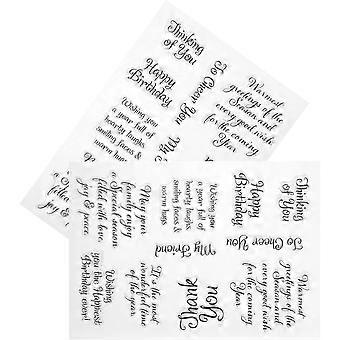 Thinking
of You
Happy
Birthday
To Cheer You
Warmest
greetings of the
Season and
every good wish
for the coming
Year
Wishing you
a year full of
hearty laughs
smiling faces &
warm hugs
My
joy & peace
Thinking
of You
Happy
Birthday
To Cheer You
Warmest
greetings of the
Season and
every good wish
for the coming
Year
Wishing you
a year full of
hearty laughs
smiling faces &
warm hugs
My Friend
Thank
You
May your
family enjoy
a Special season
filled with love,
joy & peace.
It's the most
wonderful time
of the year
Wishing
you the Happiest
Birthday ever!